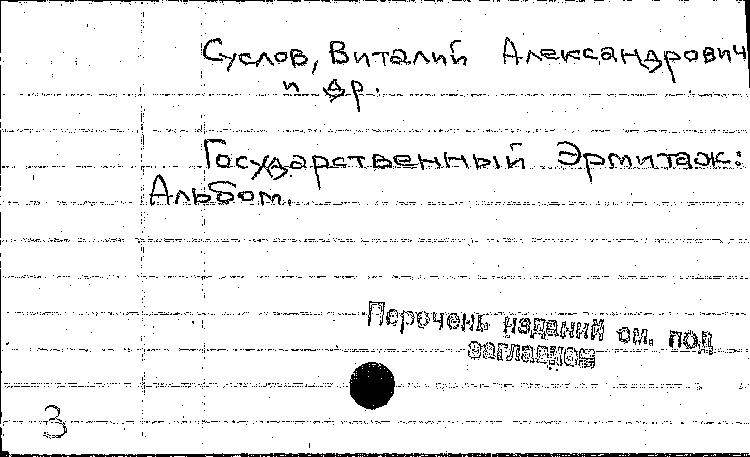 Суслов, Виталий Александрович
и др.
Государственный Эрмитаж:
Альбом.
Перечень изданий см. под
заглавием
3